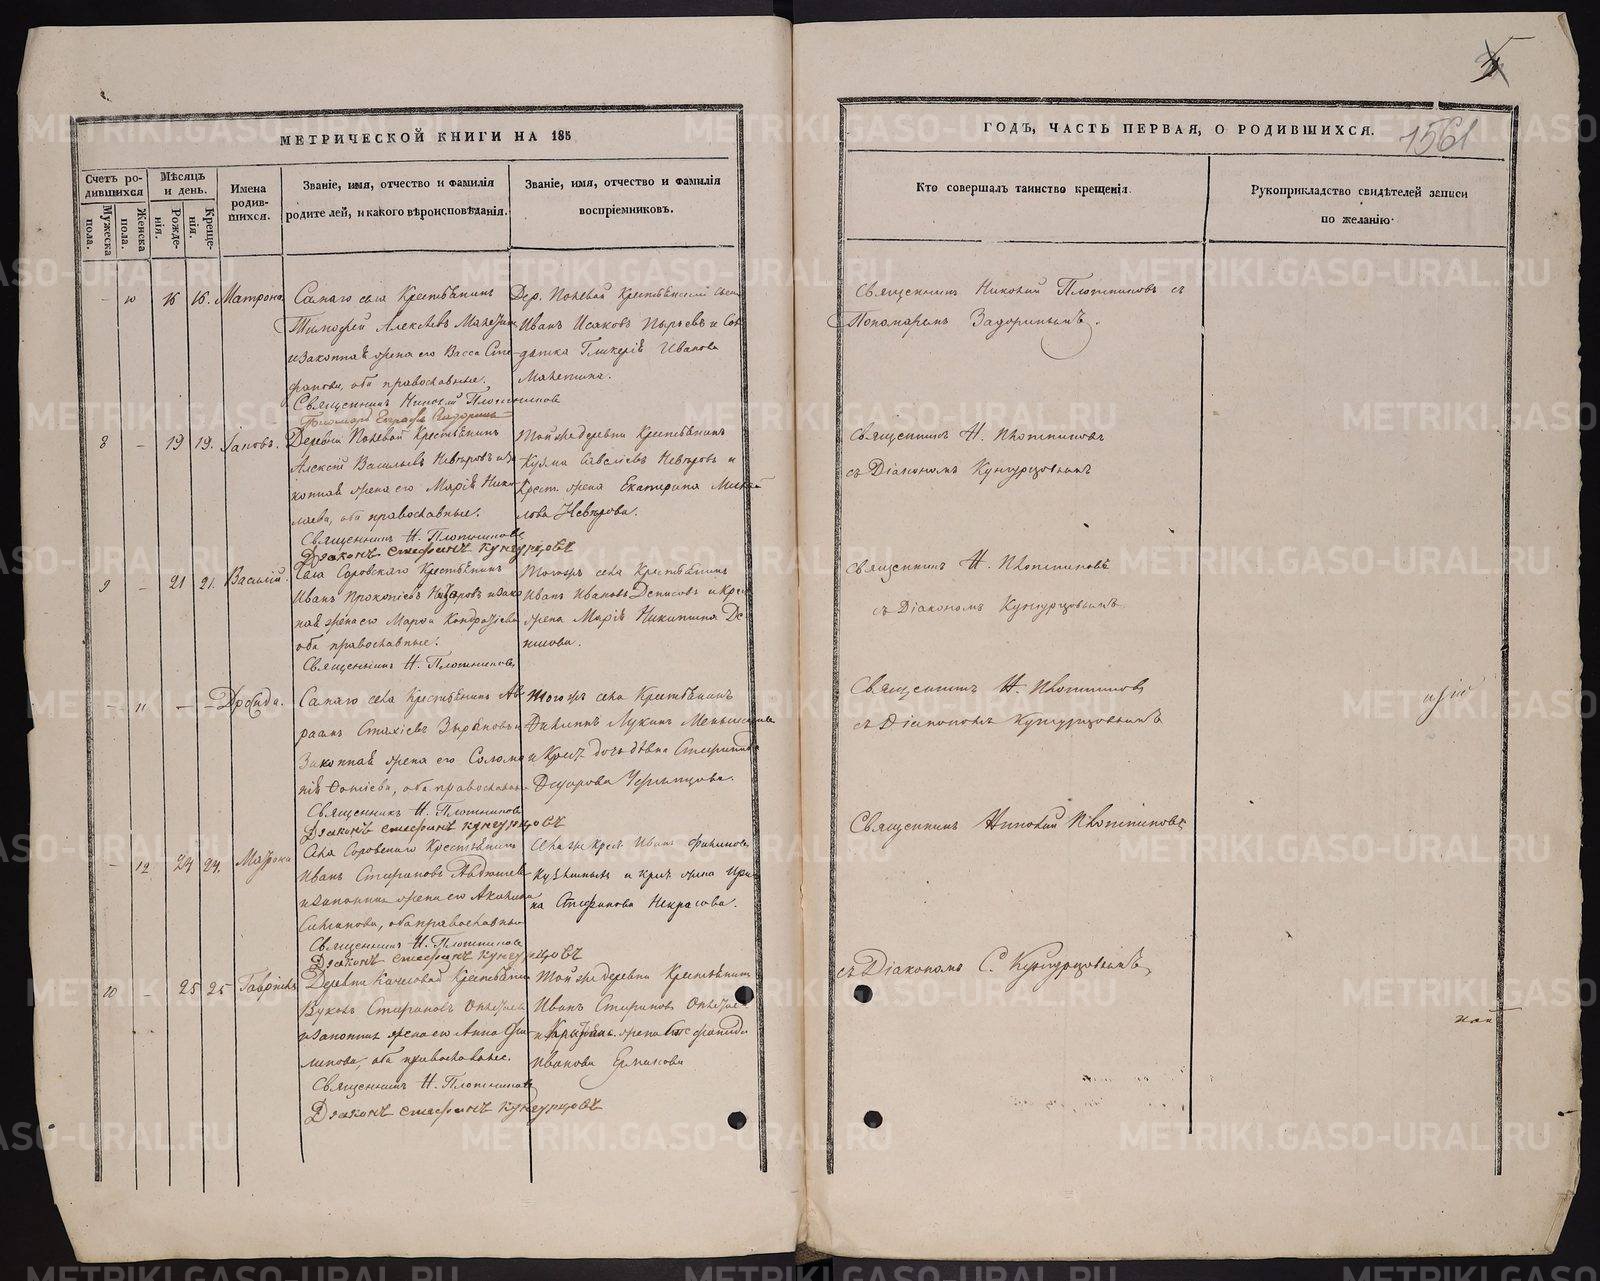 МЕТРИЧЕСКОЙ КНИГИ НА 185
Счетъ ро-
дившихся
Мѣсяцъ
и день.
Имена
родив-
шихся.
Званіе, имя, отчество и фамилія
родителей, и какого вѣроисповѣданія.
Званіе, имя, отчество и фамилія
воспріемниковъ.
Мужеска
пола.
Женска
пола.
Рожде-
нія.
Креще-
нія.
10 16 16. Матрона.
Самаго села Крестьянинъ
Тимофей Алексѣевъ
и законная жена его Васса Сте-
фанова, оба православные.
Священникъ Николай Плотниковъ
Дер. Полевой Крестьянскій сынъ
Иванъ Исаковъ Пырьевъ и Сол-
датка Гликерія Иванова
8 - 19 19. Іаковъ.
Деревни Полевой Крестьянинъ
Алексѣй Васильевъ Невѣровъ и за-
конная жена его Марія Нико-
лаева, оба православные.
Священникъ Н. Плотниковъ
Дьяконъ Стефанъ Кунгурцовъ
Той же деревни Крестьянинъ
Козма Савеліевъ Невѣровъ и
Крест. жена Екатерина Михай
лова Невѣрова.
9 - 21 21. Василій.
Села Соровскаго Крестьянинъ
Иванъ Прокопіевъ Назаровъ и зако
ная жена его Марѳа Кондратіева
оба православные.
Священникъ Н. Плотниковъ
Того же села Крестьянинъ
Иванъ Ивановъ Денисовъ и крес
жена Марія Никитина Де-
нисова.
- 11 - -
Самаго села Крестьянинъ Ав
раамъ Стахіевъ Зыряновъ и
Законная жена его Солома
нія Фотіева, оба православные
Священникъ Н. Плотниковъ
Дьяконъ Стефанъ Кунгурцовъ
Того же села Крестьянинъ
Филиппъ Лукинъ Меньшенина
и Крест. дочь дѣвка Стефанида
Ѳедорова
- 12 24 24. Матрона
Села Соровскаго Крестьянинъ
Иванъ Стефановъ Авдюшевъ
и законная жена его Акилина
оба православные
Священникъ Н. Плотниковъ
Дьяконъ Стефанъ Кунгурцовъ
Села же Крест. Иванъ Филиповъ
и крест. жена Ири-
на Стефанова Некрасова.
10 - 25 25 Гавріилъ
Деревни Качесовой Крестьянинъ
Вуколъ Стефановъ
и законная жена его Анна Фи
липова, оба православные.
Священникъ Н. Плотниковъ
Дьяконъ Стефанъ Кунгурцовъ
Той же деревни Крестьянинъ
Иванъ Стефановъ
и жена Стефанида
Иванова Ермакова
ГОДЪ, ЧАСТЬ ПЕРВАЯ, О РОДИВШИХСЯ.
1561
Кто совершалъ таинство крещенія.
Рукоприкладство свидѣтелей записи
по желанію.
Священникъ Николай Плотниковъ съ
Пономаремъ Задоринымъ.
Священникъ Н. Плотниковъ
съ Діакономъ Кунгурцовымъ
Священникъ Н. Плотниковъ
съ Діакономъ Кунгурцовымъ
Священникъ Н. Плотниковъ
съ Діакономъ Кунгурцовымъ
Священникъ Николай Плотниковъ
съ Діакономъ С. Кунгурцовымъ
METRIKI.GASO-URAL.RU